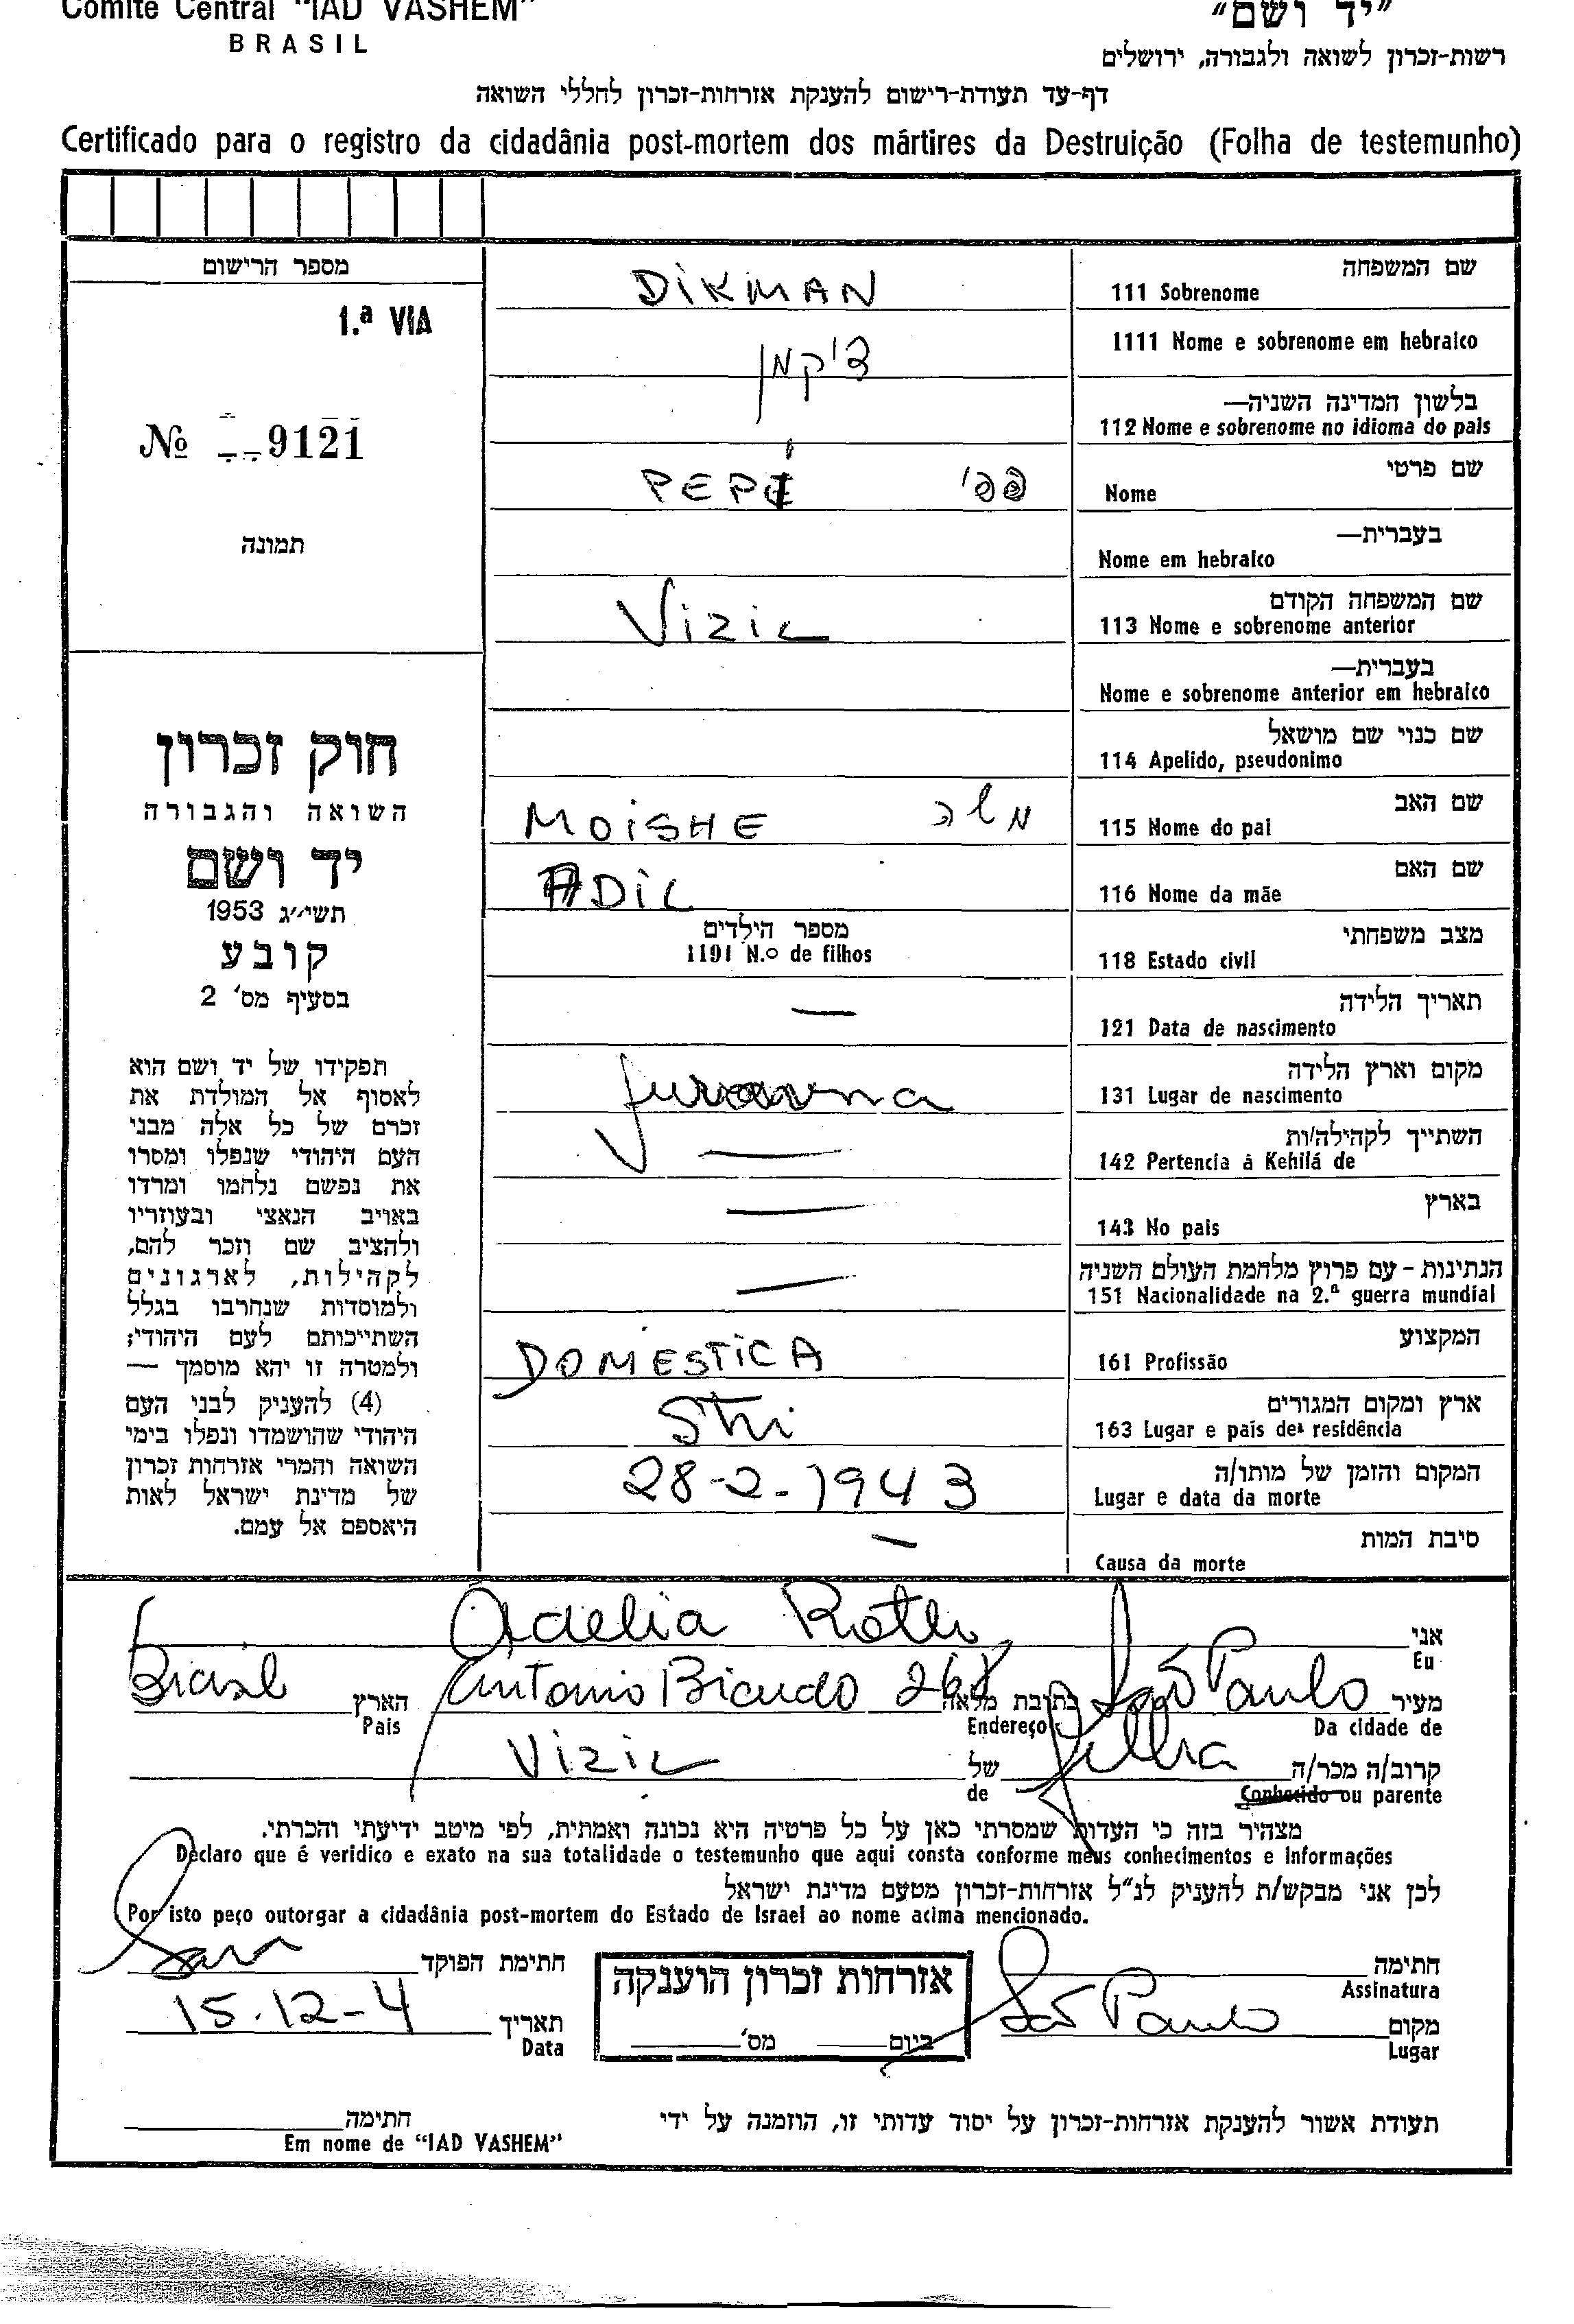 Comité Central "IAD VASHEM"
BRASIL
"יד ושם"
רשות-זכרון לשואה ולגבורה, ירושלים
דף-עד תעודת-רישום להענקת אזרחות-זכרון לחללי השואה
Certificado para o registro da cidadânia post-mortem dos mártires da Destruição (Folha de testemunho)
מספר הרישום
1.ª VIA
№ 9121
תמונה
חוק זכרון
השואה והגבורה
יד ושם
תשי״ג 1953
קובע
בסעיף מס' 2
תפקידו של יד ושם הוא
לאסוף אל המולדת את
זכרם של כל אלה מבני
העם היהודי שנפלו ומסרו
את נפשם נלחמו ומרדו
באויב הנאצי ובעוזריו
ולהציב שם וזכר להם,
לקהילות, לארגונים
ולמוסדות שנחרבו בגלל
השתייכותם לעם היהודי;
ולמטרה זו יהא מוסמך —
(4) להעניק לבני העם
היהודי שהושמדו ונפלו בימי
השואה והמרי אזרחות זכרון
של מדינת ישראל לאות
היאספם אל עמם.
שם המשפחה
111 Sobrenome DIKMAN
1111 Nome e sobrenome em hebraico דיקמן
בלשון המדינה השניה—
112 Nome e sobrenome no idioma do pais
שם פרטי
Nome PEPI פפי
בעברית—
Nome em hebraico
שם המשפחה הקודם
113 Nome e sobrenome anterior Vizic
בעברית—
Nome e sobrenome anterior em hebraico
שם כנוי שם מושאל
114 Apelido, pseudonimo
שם האב
115 Nome do pai MOISHE משה
שם האם
116 Nome da mãe ADIL
מצב משפחתי
118 Estado civil
מספר הילדים
1191 N.º de filhos
תאריך הלידה
121 Data de nascimento —
מקום וארץ הלידה
131 Lugar de nascimento
השתייך לקהילה/ות
142 Pertencia à Kehilá de —
בארץ
143 No pais —
הנתינות - עם פרוץ מלחמת העולם השניה
151 Nacionalidade na 2.ª guerra mundial —
המקצוע
161 Profissão DOMESTICA
ארץ ומקום המגורים
163 Lugar e país de residência Stri
המקום והזמן של מותו/ה
Lugar e data da morte 28-2-1943
סיבת המות
Causa da morte —
אני
Eu Adelia Roth
מעיר
Da cidade de São Paulo
כתובת מלאה
Endereço Antonio Bicudo 268
הארץ
Pais Brasil
קרוב/ה מכר/ה
Conhecido ou parente filha
של
de Vizic
מצהיר בזה כי העדות שמסרתי כאן על כל פרטיה היא נכונה ואמתית, לפי מיטב ידיעתי והכרתי.
Declaro que é veridico e exato na sua totalidade o testemunho que aqui consta conforme meus conhecimentos e informações
לכן אני מבקש/ת להעניק לנ״ל אזרחות-זכרון מטעם מדינת ישראל
Por isto peço outorgar a cidadânia post-mortem do Estado de Israel ao nome acima mencionado.
חתימה
Assinatura
חתימת הפוקד
אזרחות זכרון הוענקה
ביום מס'
מקום
Lugar São Paulo
תאריך
Data 15.12-4
תעודת אשור להענקת אזרחות-זכרון על יסוד עדותי זו, הוזמנה על ידי
חתימה
Em nome de "IAD VASHEM"